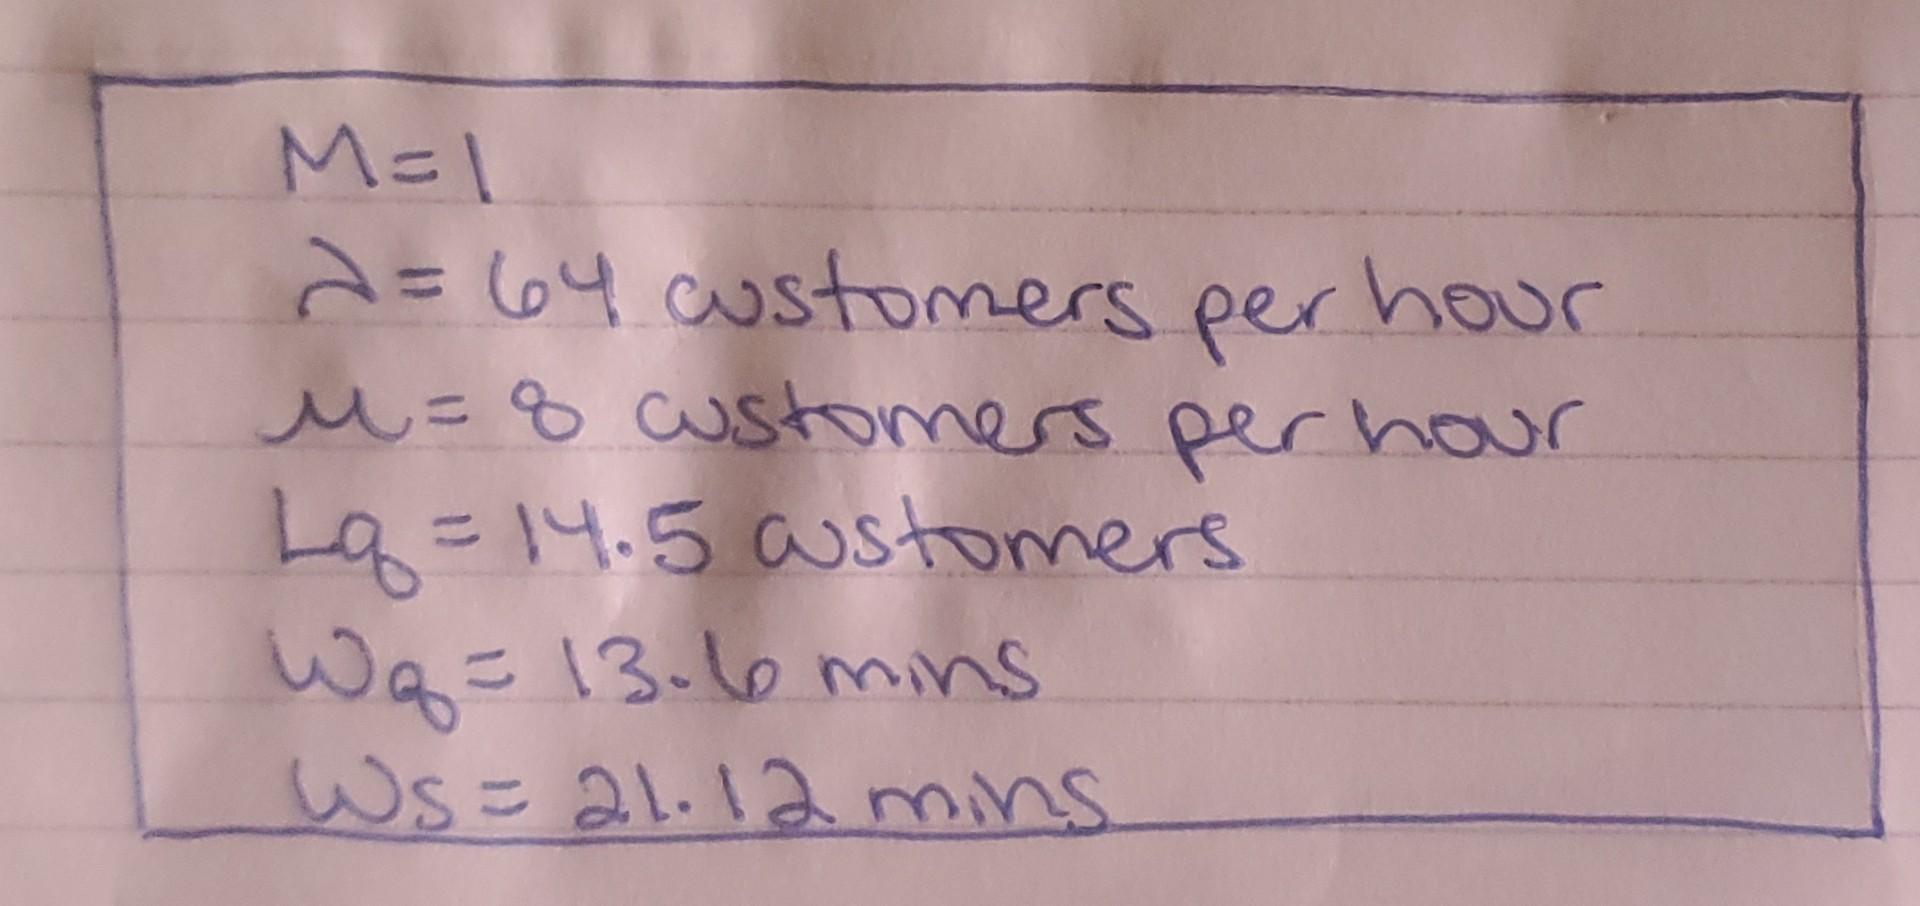 M=1
λ= 64 customers per hour
μ= 8 customers per hour
Lq = 14.5 customers
Wq = 13.6 mins
Ws = 21.12 mins